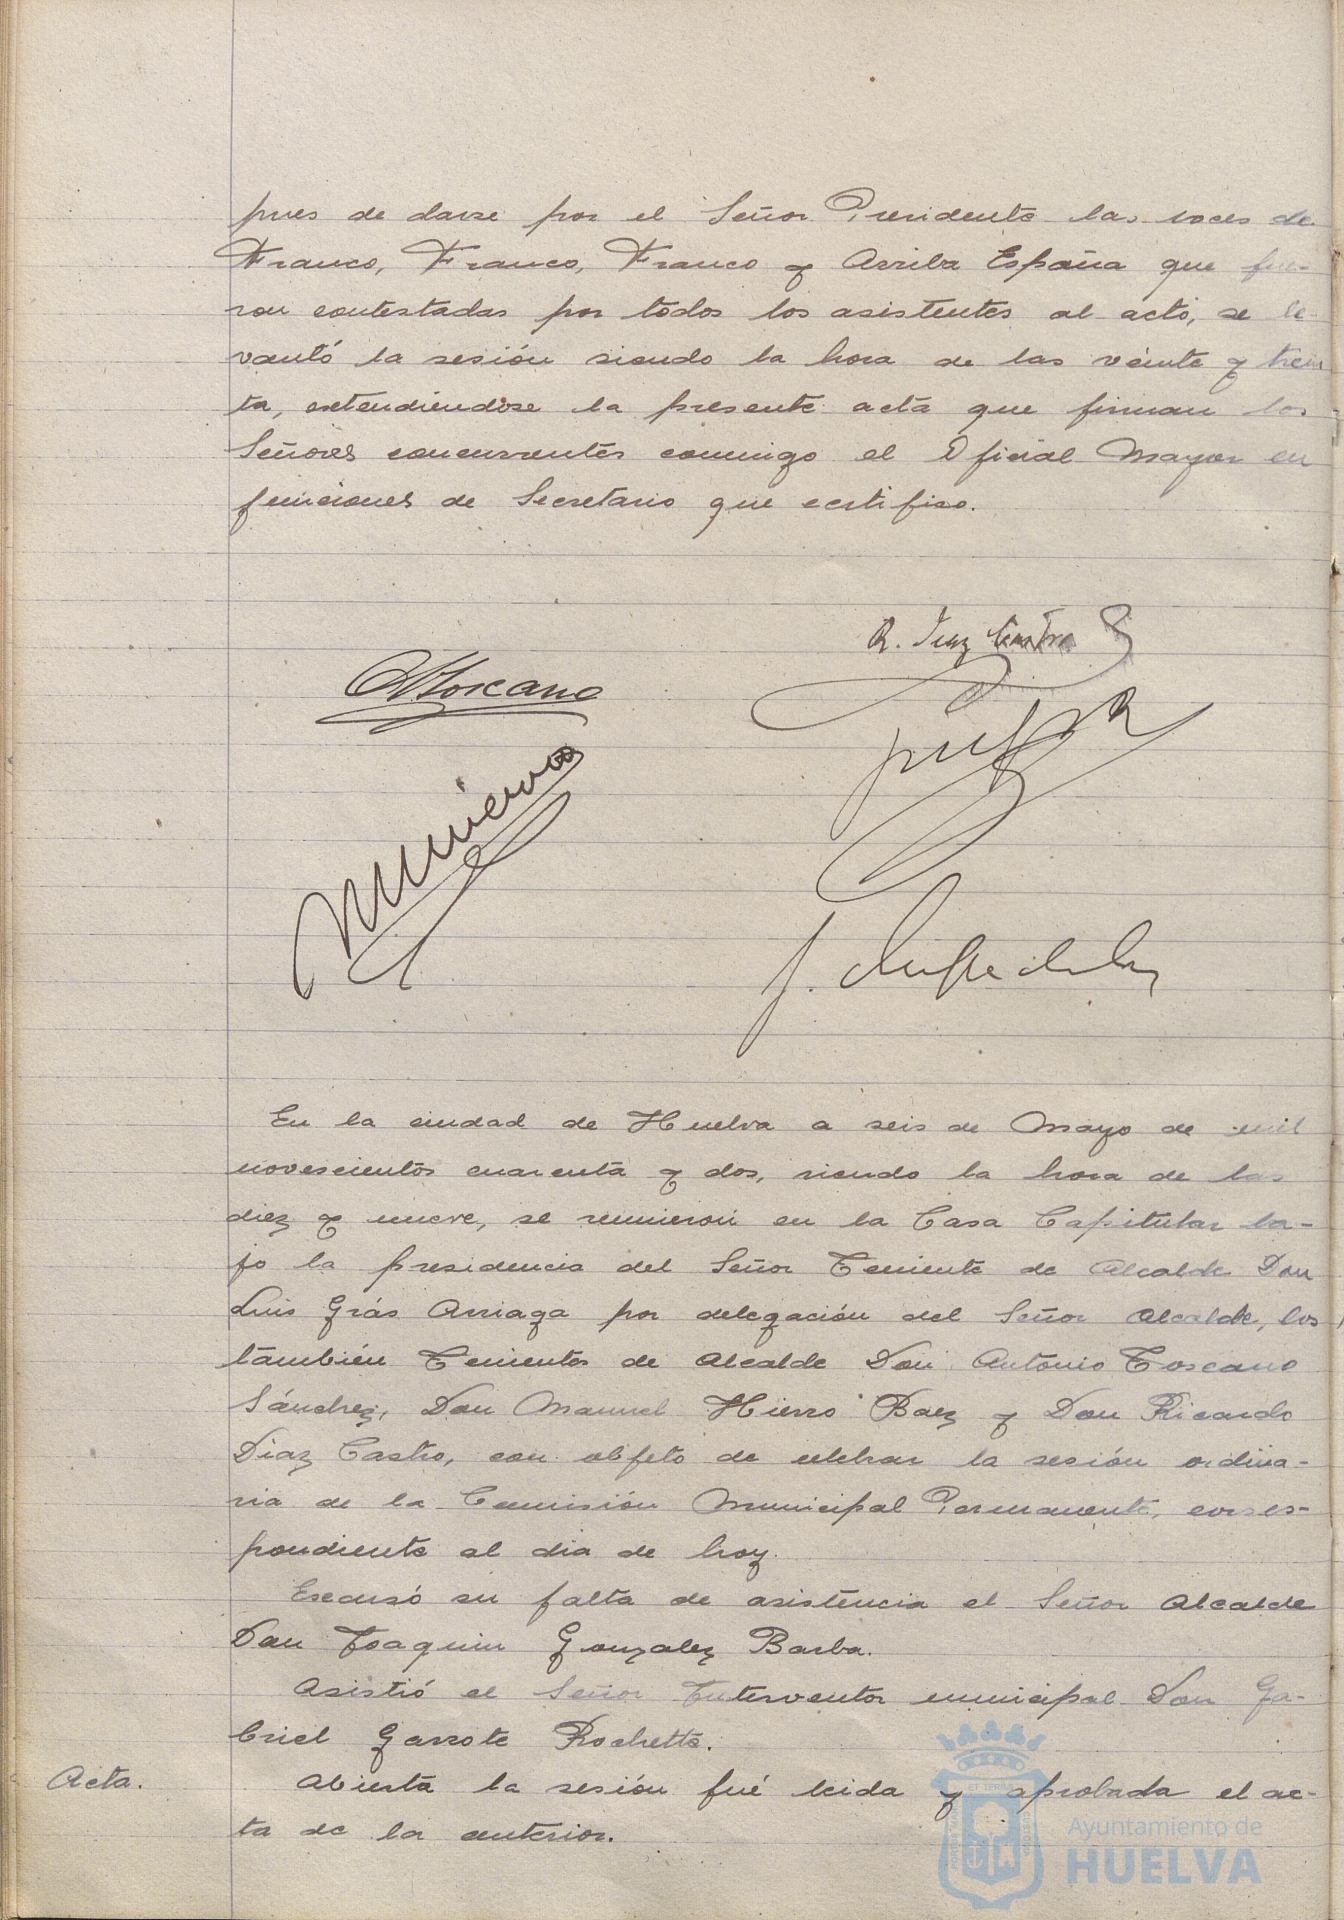 pues de darse por el Señor Presidente las voces de
Franco, Franco, Franco y Arriba España que fue-
ron contestadas por todos los asistentes al acto, se le-
vantó la sesión siendo la hora de las veinte y trein
ta, extendiéndose la presente acta que firman los
Señores concurrentes conmigo el Oficial Mayor en
funciones de Secretario que certifico.
R. Diaz Castro
A Toscano
En la ciudad de Huelva a seis de Mayo de mil
novescientos cuarenta y dos, siendo la hora de las
diez y nueve, se reunieron en la Casa Capitular ba-
jo la presidencia del Señor Teniente de Alcalde Don
Luis Grás Arriaga por delegación del Señor Alcalde, los
también Tenientes de Alcalde Don Antonio Toscano
Sánchez, Don Manuel Hierro Baez y Don Ricardo
Diaz Castro, con objeto de celebrar la sesión ordina-
ria de la Comisión Municipal Permanente, corres-
pondiente al dia de hoy.
Escusó su falta de asistencia el Señor Alcalde
Don Joaquin Gonzalez Barba.
Asistió el Señor Interventor municipal Don Ga-
briel Garrote Rochette.
Acta.
Abierta la sesión fué leida y aprobada el ac-
ta de la anterior.
Ayuntamiento de
HUELVA